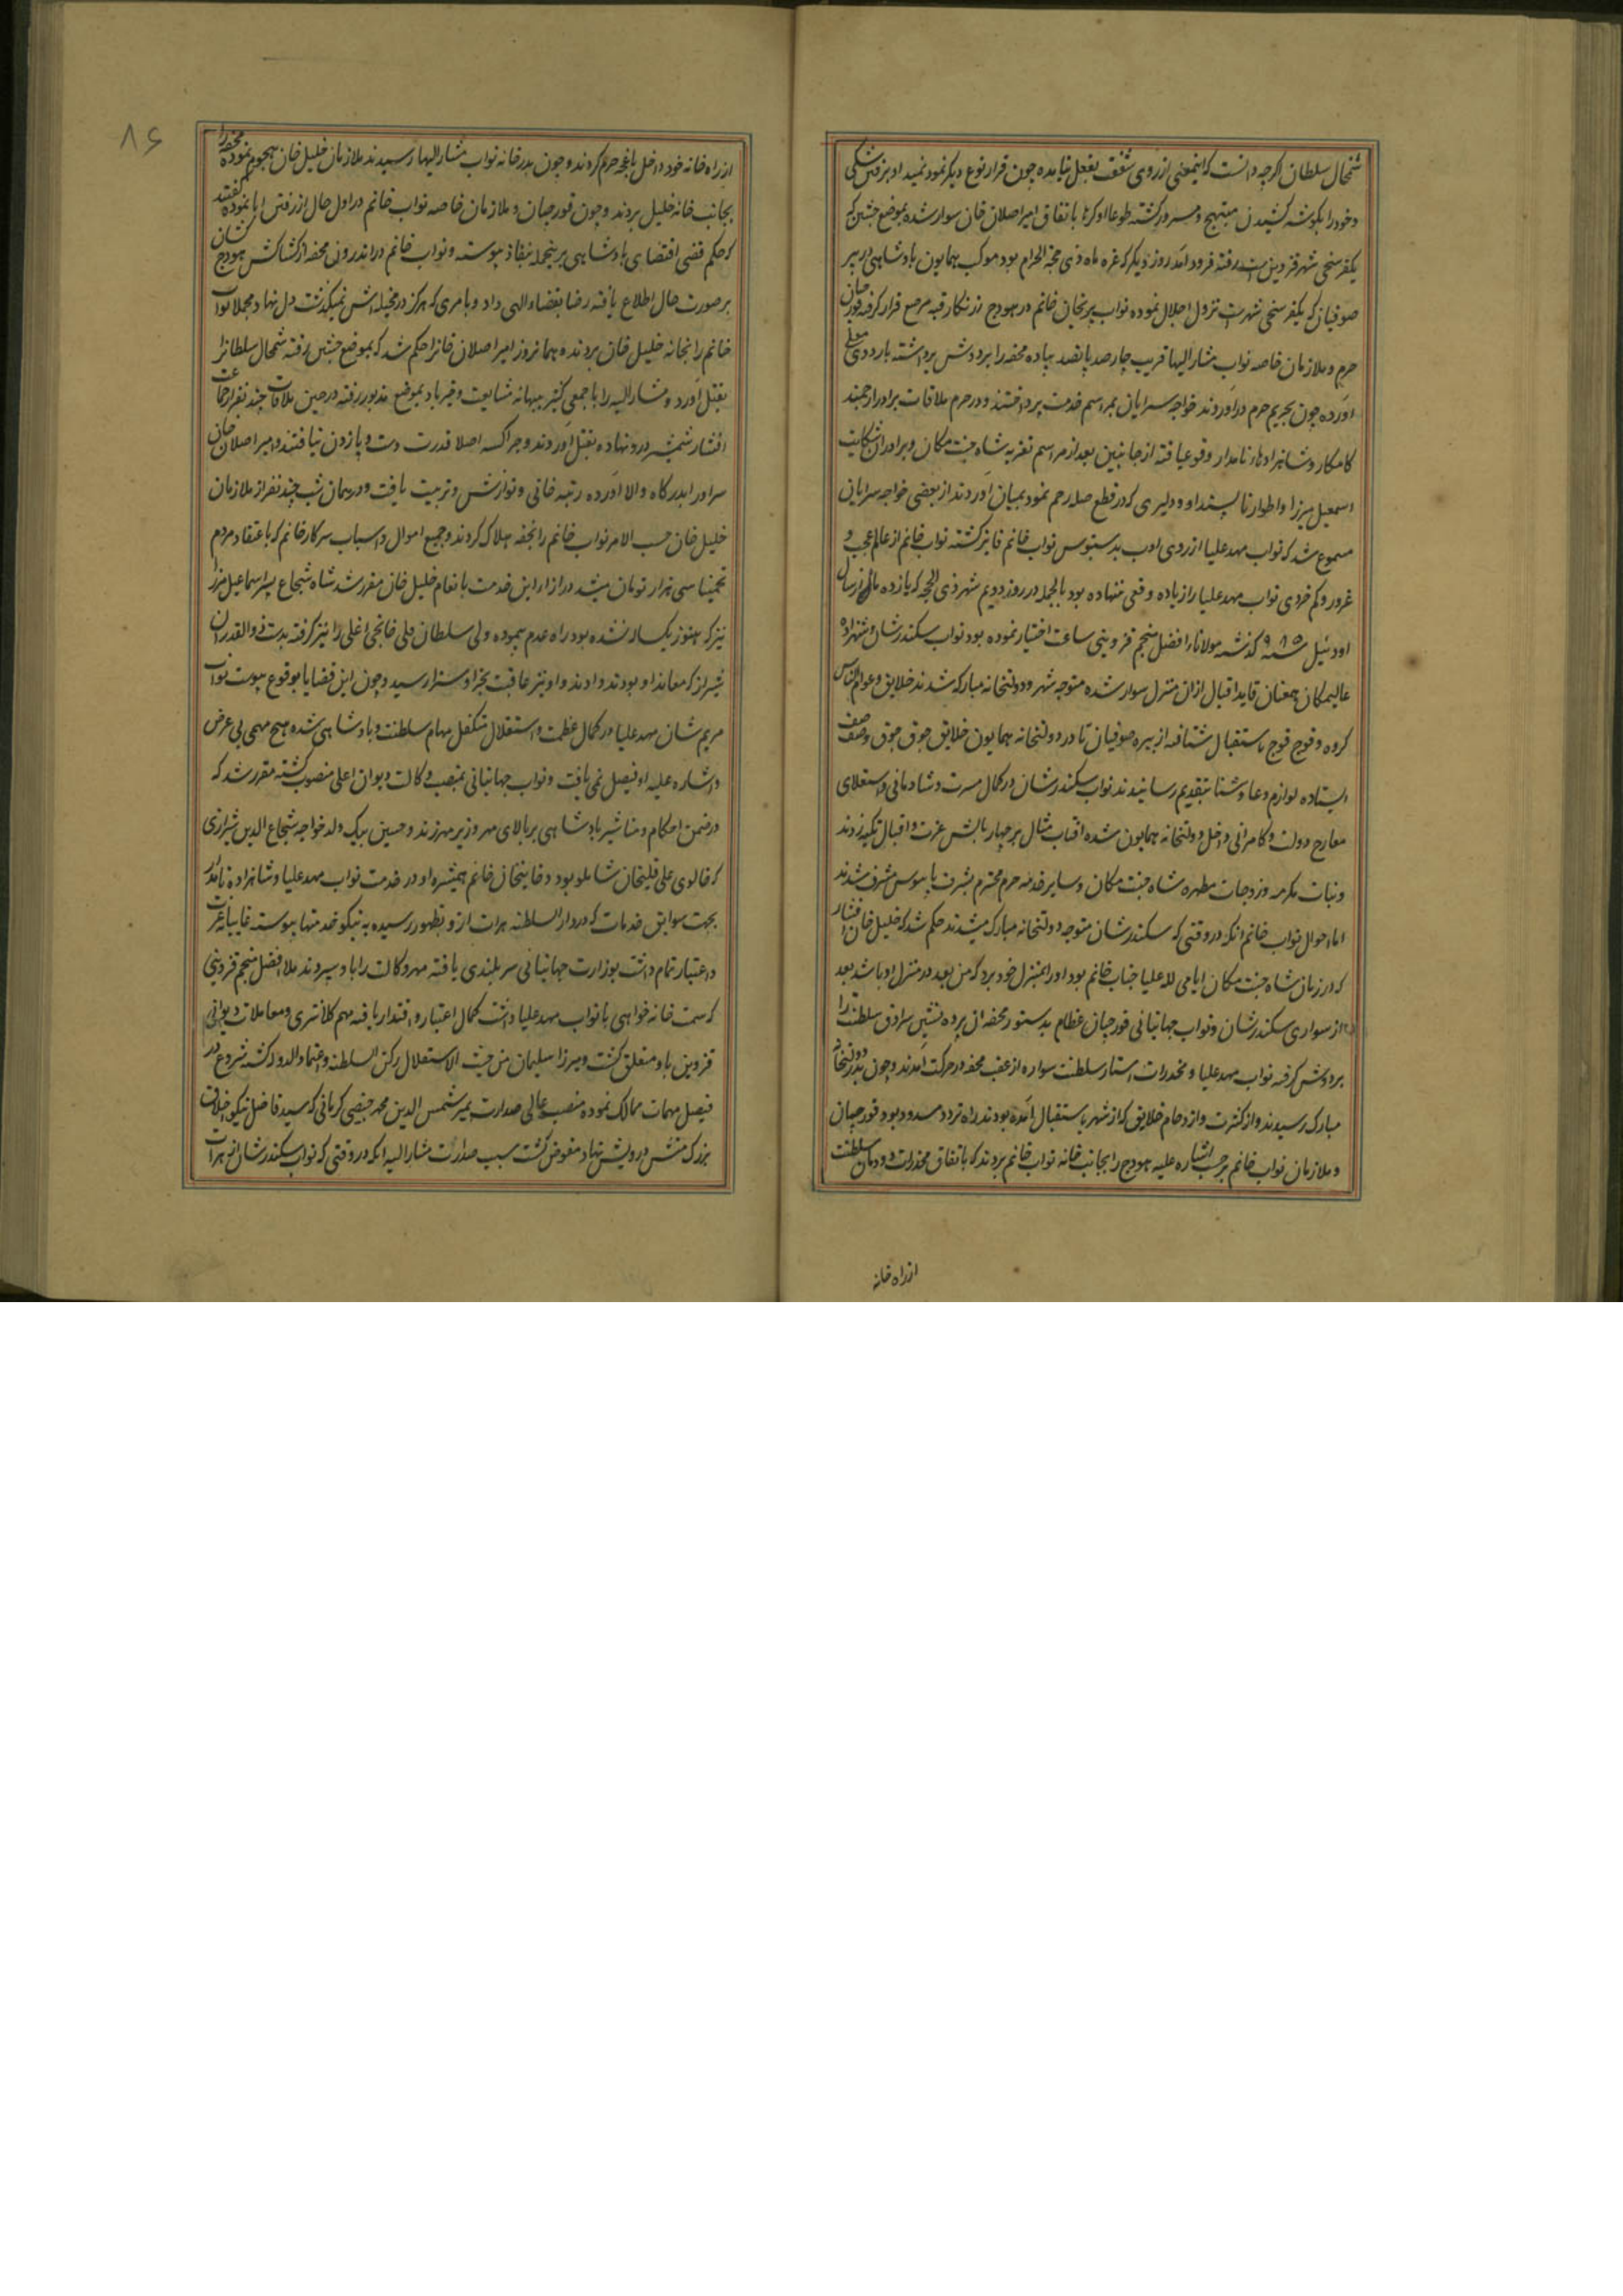 شمخال سلطان اگرچه دانست که اینمعنی از روی شفقت بفعل نیامده چون قرار نوع دیگر نمود نمیداد بر فتن شکی
و خود را بگوشه کشیدن مبتهج و مسرور گشته طوعا او کرها باتفاق امیر اصلان خان سوار شده بموضع جشن که
یکفرسخی شهر قزوین است رفته فرود آمد روز دیگر که غره ماه ذی حجة الحرام بود موکب همایون پادشاهی در بیر
صوفیان که یکفرسخی شهرست نزول اجلال نموده نواب پریخان خانم در هودج زرنگار قبه مرصع قرار گرفته قورچیان
حرم و ملازمان خاصه نواب مشار الیها قریب چارصد پانصد پیاده محفه را بر دوش برداشته باردوی معلی
آورده چون بحریم حرم درآوردند خواجه سرایان بمراسم خدمت پرداختند و در حرم ملاقات برادر ارجمند
کامکار و شاهزادهاء نامدار وقوع یافته از جانبین بعد از مراسم تعزیه شاه جنت مکان و برادران شکایت
اسمعیل میرزا و اطوار ناپسند او و دلیری که در قطع صله رحم نمود بمیان آوردند از بعضی خواجه سرایان
مسموع شد که نواب مهد علیا از روی ادب بدستبوس نواب خانم فایز گشته نواب خانم از عالم عجب و
غرور و کم خردی نواب مهد علیا را زیاده وقعی ننهاده بود بالجمله در روز دویم شهر ذی الحجه که یازده ماه از سال
اودئیل سنه ۹۸۵ گذشته مولانا افضل منجم قزوینی ساعت اختیار نموده بود نواب سکندرشان و شهزاده
عالیمکان همعنان قاید اقبال از ان منزل سوار شده متوجه شهر و دولتخانه مبارکه شدند خلایق و عوام الناس
گروه و فوج فوج باستقبال شتافته از بیره صوفیان تا در دولتخانه همایون خلایق جوق جوق و صف صف
ایستاده لوازم دعا و ثنا بتقدیم رسانیدند نواب سکندرشان در کمال مسرت و شادمانی و استعلای
معارج دولت و کامرانی داخل دولتخانه همایون شده آفتاب مثال بر چهار بالش عزت و اقبال تکیه زدند
و بنات مکرمه و زوجات مطهره شاه جنت مکان و سایر خدمه حرم محترم بشرف پابوس مشرف شدند
اما احوال نواب خانم آنکه در وقتی که سکندرشان متوجه دولتخانه مبارک میشدند حکم شد که خلیل خان افشار
که در زمان شاه جنت مکان ایامی لله علیا جناب خانم بود او را بمنزل خود برد که من بعد در منزل او باشد بعد
از سواری سکندرشان و نواب جهانبانی قورچیان عظام بدستور محفه ان پرده نشین سرادق سلطنت را
بر دوش گرفته نواب مهد علیا و مخدرات استار سلطنت سواره از عقب محفه در حرکت آمدند و چون بدر دولتخانه
مبارک رسیدند و از کثرت و ازدحام خلایق که از شهر باستقبال آمده بودند راه تردد مسدود بود قورچیان
و ملازمان نواب خانم بر حسب اشاره علیه هودج را بجانب خانه نواب خانم بردند که باتفاق مخدرات دودمان سلطنت
از راه خانه
۸۶
از راه خانه خود داخل باغچه حرم گردند و چون بدر خانه نواب مشار الیها رسیدند ملازمان خلیل خان هجوم نموده محفه را
بجانب خانه خلیل بردند و چون قورچیان و ملازمان خاصه نواب خانم در اول حال از رفتن ابا نموده گفتند
که حکم قضی اقتضای پادشاهی بر ینجمله نفاذ پیوسته و نواب خانم در اندرون محفه از کشاکش هودج کشان
بر صورت حال اطلاع یافته رضا بقضاء الهی داد و بامری که هرگز در مخیله اش نمیگذشت دل نهاد و مجملا نواب
خانم را بخانه خلیل خان بردند و همان روز امیر اصلان خانرا حکم شد که بموضع جشن رفته شمخال سلطانرا
بقتل آورد و مشار الیه را با جمعی کثیر ببهانه مشایعت و خیرباد بموضع مذبور رفته در حین ملاقات چند نفر از جماعت
افشار شمشیر درو نهاده بقتل آوردند و چراکسه اصلا قدرت دست و پا زدن نیافتند و امیر اصلان خان
سر او را بدرگاه والا آورده رتبه خانی و نوازش و تربیت یافت و در همان شب چند نفر از ملازمان
خلیل خان حسب الامر نواب خانم را بخفه هلاک کردند و جمیع اموال و اسباب سرکار خانم که باعتقاد مردم
تخمینا سی هزار تومان میشد در ازاء این خدمت بانعام خلیل خان مقرر شد شاه شجاع پسر اسماعیل میرزا
نیز که هنوز یکساله نشده بود راه عدم پیموده ولی سلطان قلی خانجی اغلی را نیز گرفته بدست ذوالقدران
شیراز که معاند او بودند دادند و او نیز عاقبت بجزا و سزا رسید و چون این قضایا بوقوع پیوست نواب
مریم شان مهد علیا در کمال عظمت و استقلال متکفل مهام سلطنت و پادشاهی شده هیچ مهمی بی عرض
و اشاره علیه او فیصل نمی یافت و نواب جهانبانی بمنصب وکالت دیوان اعلی منصوب گشته مقرر شد که
در ضمن احکام و مناشیر پادشاهی بر بالای مهر وزیر مهر زند و حسین بیک ولد خواجه شجاع الدین شیرازی
که خالوی علی قلیخان شاملو بود و خانیخان خانم همشیره او در خدمت نواب مهد علیا و شاهزاده نامدار
بجهت سوابق خدمات که در دار السلطنه هرات ازو بظهور رسیده به نیکو خدمتها پیوسته غایبانه عزت
و اعتبار تمام داشت بوزارت جهانبانی سربلندی یافته مهر وکالت را باو سپردند ملا افضل منجم قزوینی
که سمت خانه خواهی با نواب مهد علیا داشت کمال اعتبار و اقتدار یافته مهم کلانتری و معاملات دیوانی
قزوین باو متعلق گشت و میرزا سلیمان من حیث الاستقلال رکن السلطنه و اعتماد الدوله گشته شروع در
فیصل مهمات ممالک نموده منصب عالی صدارت بمیر شمس الدین محمد خبیصی کرمانی که سید فاضل نیکو اخلاق
بزرگ منش درویش نهاد مفوض گشت سبب صدارت مشار الیه آنکه در وقتی که نواب سکندرشان از هرات